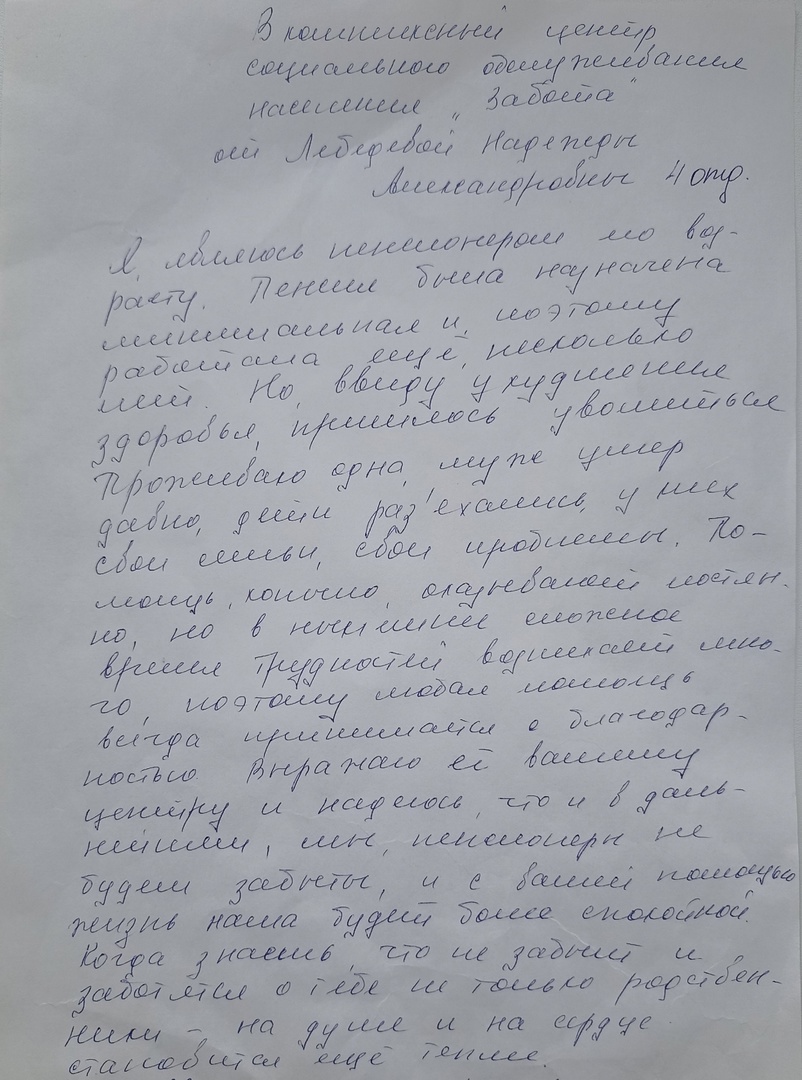 В комплексный центр
социального обслуживания
населения „Забота"
от Лебедевой Надежды
Александровны 4 отд.
Я, являюсь пенсионером по воз-
расту. Пенсия была назначена
минимальная и, поэтому
работала ещё, несколько
лет. Но, ввиду ухудшения
здоровья, пришлось уволиться
Проживаю одна, муж умер
давно, дети раз'ехались, у них
свои семьи, свои проблемы. По-
мощь, конечно, оказывают постоян-
но, но в нынешнее сложное
время трудностей возникает мно-
го, поэтому любая помощь
всегда принимается с благодар-
ностью. Выражаю её вашему
центру и надеюсь, что и в даль-
нейшем, мы, пенсионеры не
будем забыты, и с вашей помощью
жизнь наша будет более спокойной.
Когда знаешь, что не забыт и
заботятся о тебе не только родствен-
ники – на душе и на сердце
становится ещё теплее.